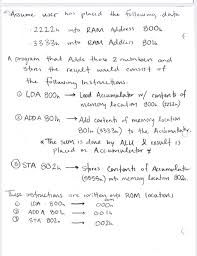 Assume user has placed the following data
2222h into RAM Address 800h
3333h into RAM Address 801h
A program that Adds those 2 numbers and
stores the result would consist of
the following Instructions:
① LDA 800h → Load Accumulator w/ contents of
memory location 800h (2222h)
② ADDA 801h → Add contents of memory location
801h (3333h) to the Accumulator.
* The sum is done by ALU & result is
placed in Accumulator *
③ STA 802h → Stores Contents of Accumulator
(5555h) into memory location 802h.
These instructions are written into ROM locations
① LDA 800h → 000h
② ADDA 801h → 001h
③ STA 802h → 002h